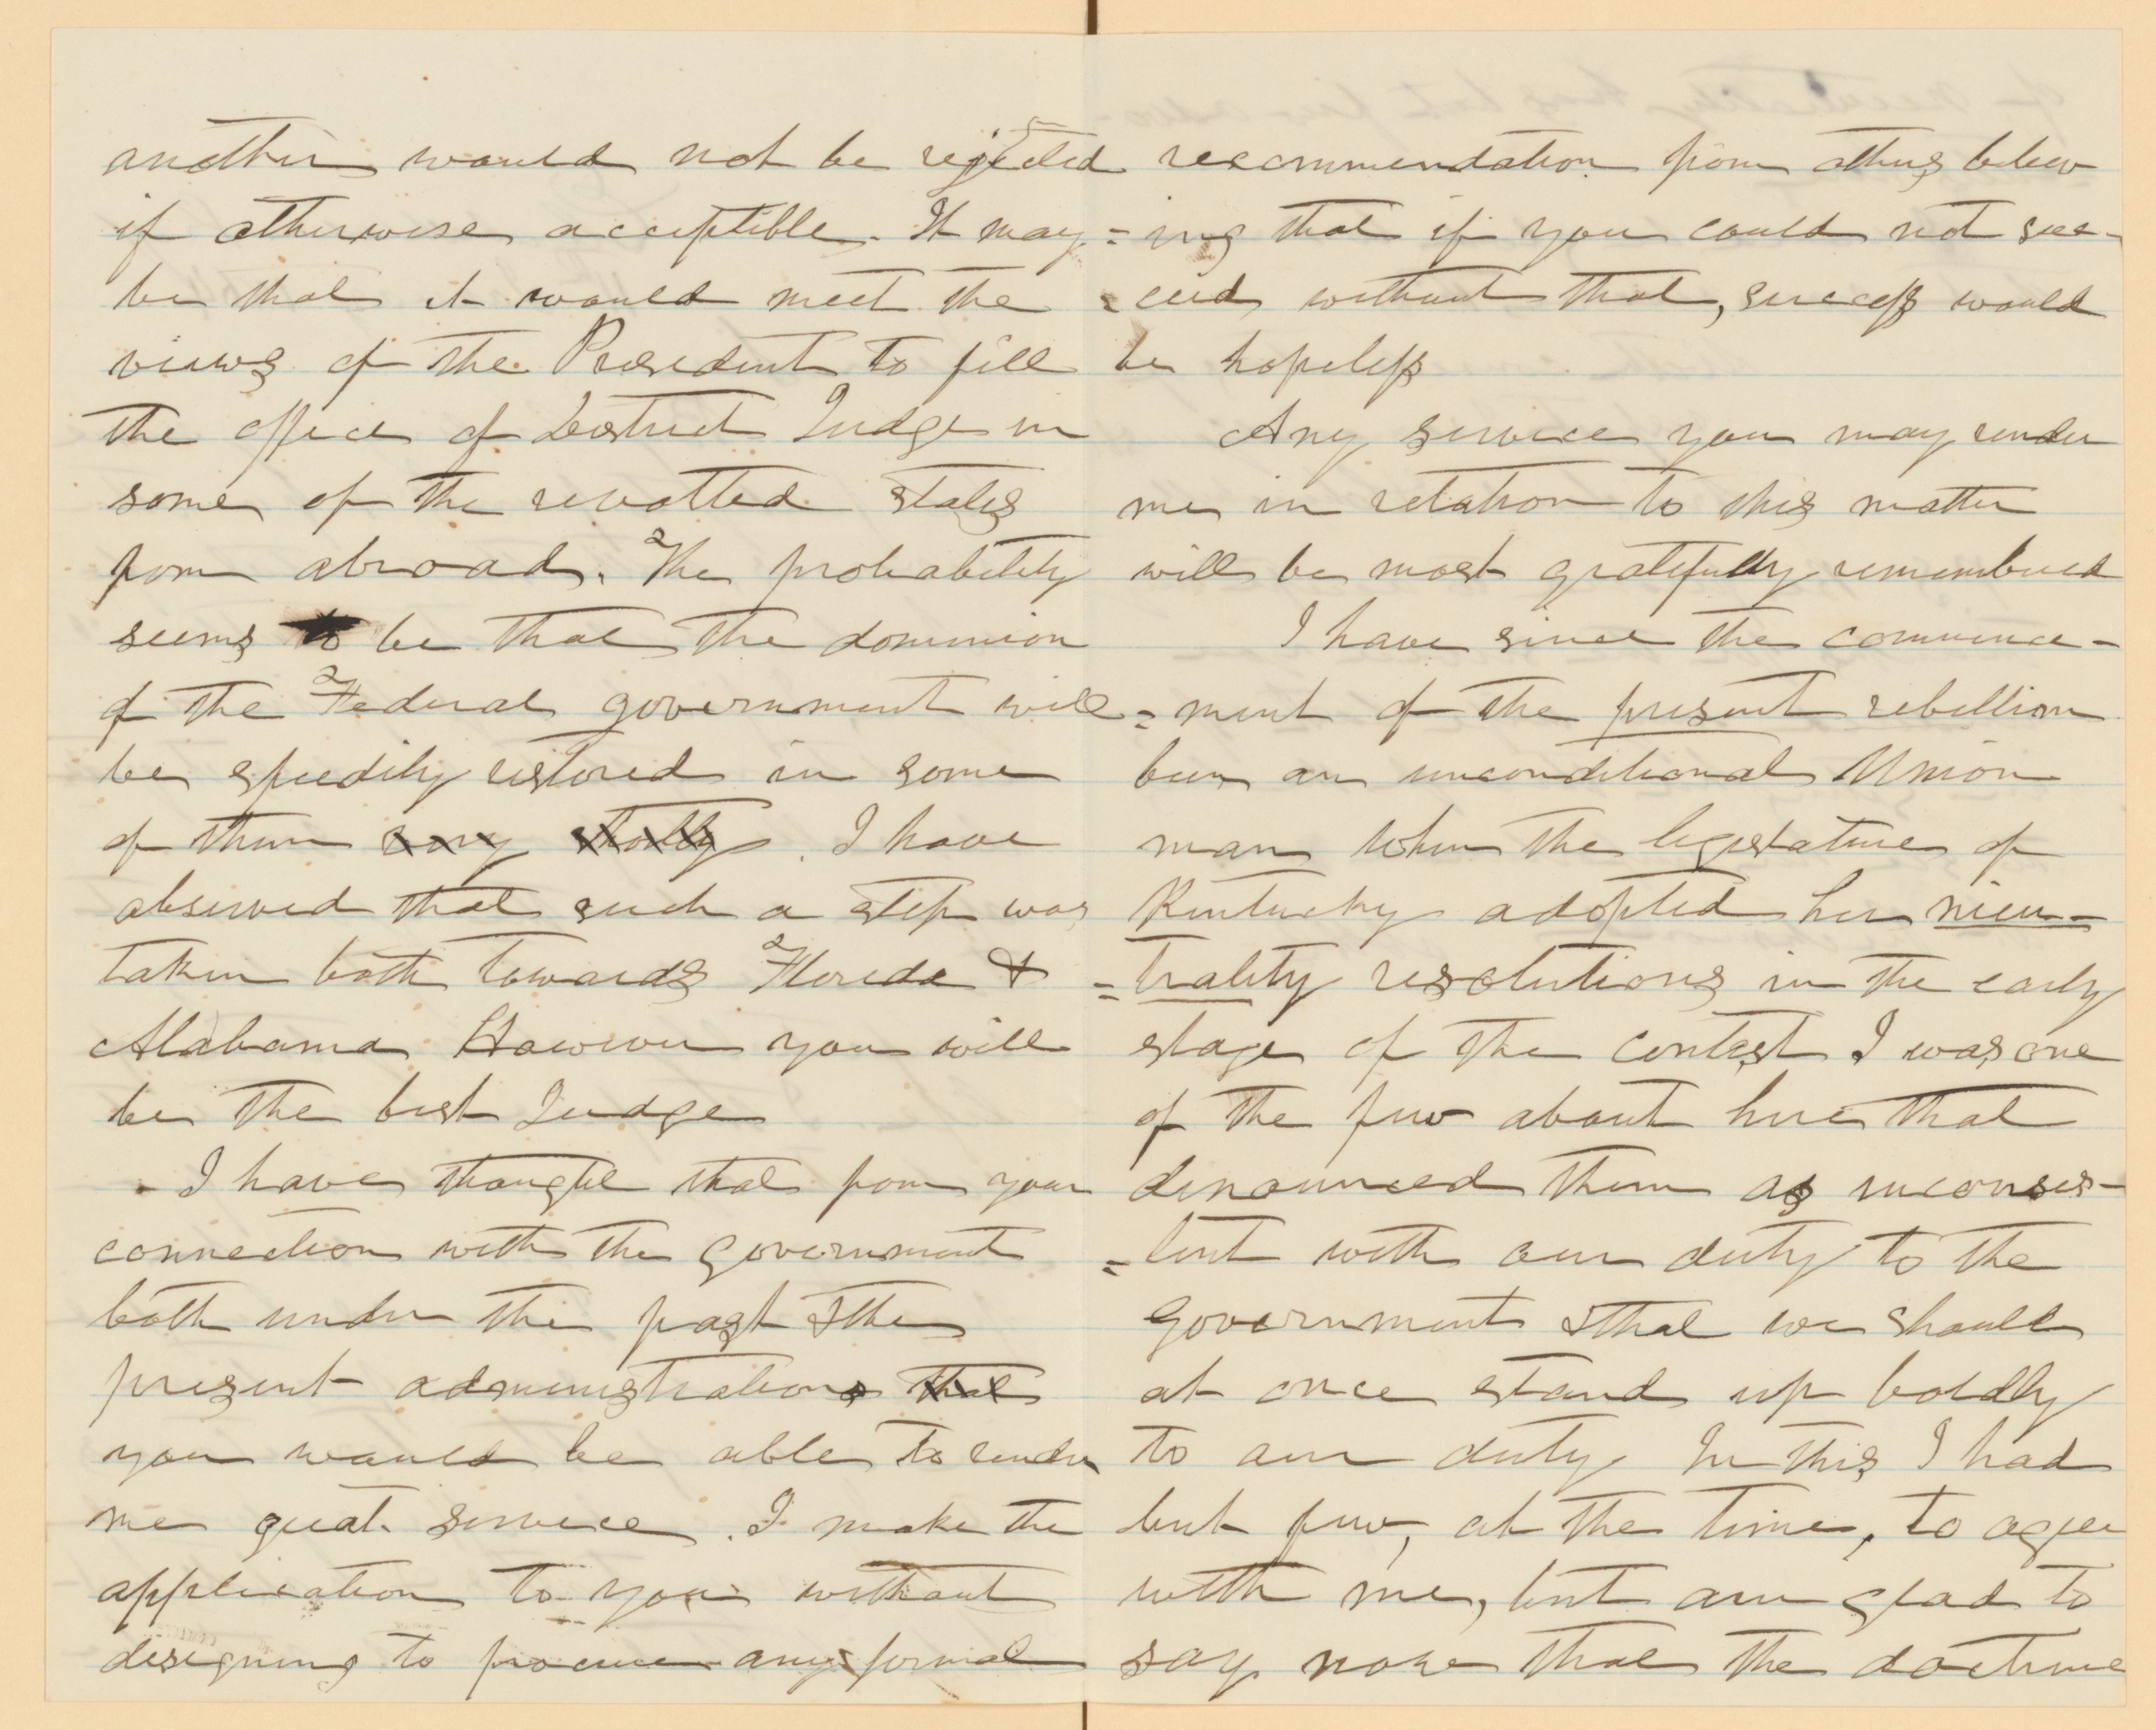 another would not be rejected
if otherwise acceptible. It may
be that it would meet the
views of the President to fill
the office of District Judge in
some of the revolted states
from abroad. The probability
seems to be that the dominion
of the Federal government will
be speedily restored in some
of them very shortly. I have
observed that such a step was
taken both towards Florida &
Alabama However you will
be the best Judge
- I have thought that from your
connection with the government
both under the past & the
present administrations that
you would be able to render
me great service. I make the
application to you without
designing to procure any formal
recommendation from others believ
=ing that if you could not suc-
=ceed without that, success would
be hopeless
Any service you may render
me in relation to this matter
will be most gratefully remembered
I have since the commence-
=ment of the present rebellion
been an unconditional Union
man when the legislature of
Kentucky adopted her nieu-
=trality resolutions in the early
stage of the contest I was one
of the few about here that
denounced them as inconsis-
=tent with our duty to the
government & that we should
at once stand up boldly
to our duty In this I had
but few, at the time, to agree
with me, but am glad to
say now that the doctrine